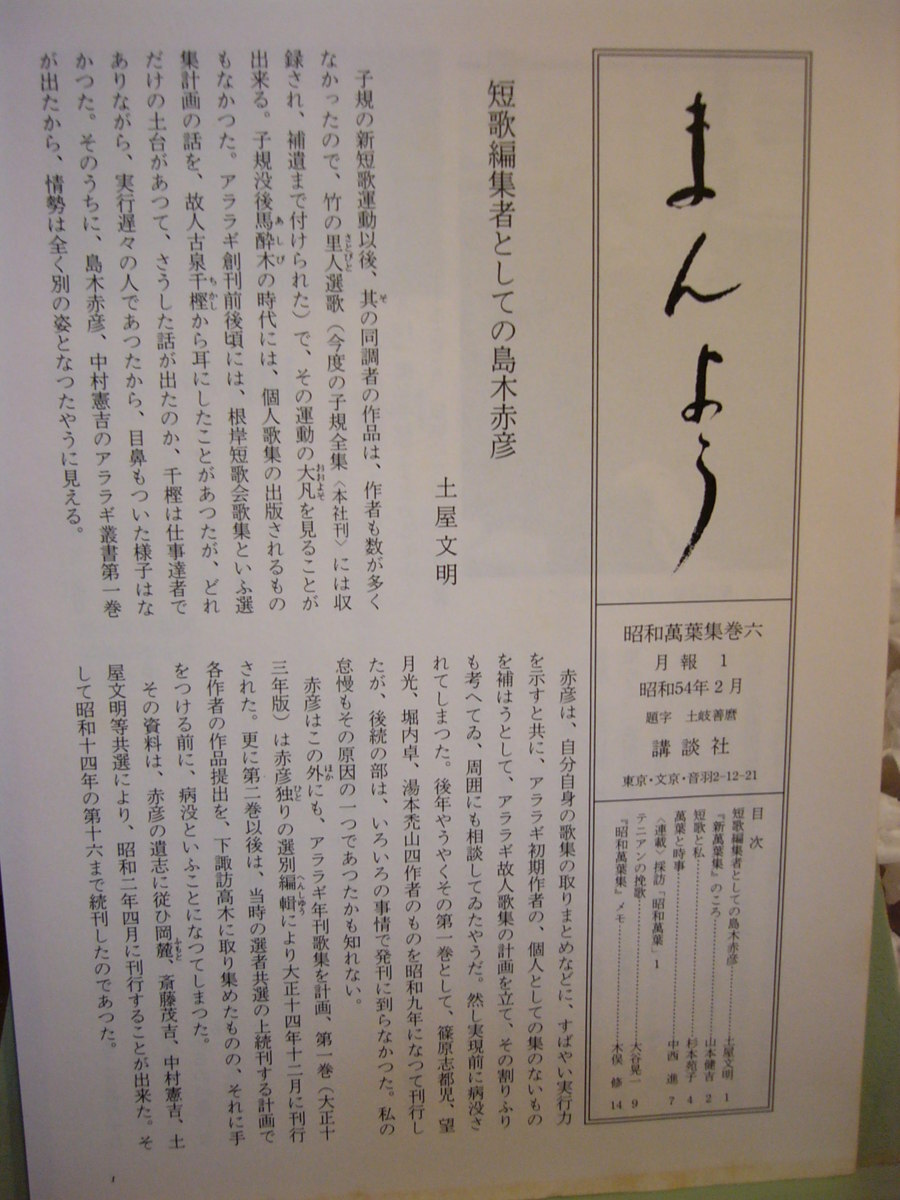 まんよう
昭和萬葉集巻六
月報 1
昭和54年2月
題字 土岐善麿
講談社
東京・文京・音羽2-12-21
目次
短歌編集者としての島木赤彦……土屋文明 1
『新萬葉集』のころ……山本健吉 2
短歌と私……杉本苑子 4
萬葉と時事……中西 進 7
〈連載〉採訪「昭和萬葉」1
テニアンの挽歌……大谷晃一 9
『昭和萬葉集』メモ……木俣 修 14
短歌編集者としての島木赤彦
土屋文明
子規の新短歌運動以後、其の同調者の作品は、作者も数が多く
なかったので、竹の里人選歌（今度の子規全集〈本社刊〉には収
録され、補遺まで付けられた）で、その運動の大凡を見ることが
出来る。子規没後馬酔木の時代には、個人歌集の出版されるもの
もなかつた。アララギ創刊前後頃には、根岸短歌会歌集といふ選
集計画の話を、故人古泉千樫から耳にしたことがあつたが、どれ
だけの土台があつて、さうした話が出たのか、千樫は仕事達者で
ありながら、実行遅々の人であつたから、目鼻もついた様子はな
かつた。そのうちに、島木赤彦、中村憲吉のアララギ叢書第一巻
が出たから、情勢は全く別の姿となつたやうに見える。
赤彦は、自分自身の歌集の取りまとめなどに、すばやい実行力
を示すと共に、アララギ初期作者の、個人としての集のないもの
を補はうとして、アララギ故人歌集の計画を立て、その割りふり
も考へてゐ、周囲にも相談してゐたやうだ。然し実現前に病没さ
れてしまつた。後年やうやくその第一巻として、篠原志都児、望
月光、堀内卓、湯本禿山四作者のものを昭和九年になつて刊行し
たが、後続の部は、いろいろの事情で発刊に到らなかつた。私の
怠慢もその原因の一つであつたかも知れない。
赤彦はこの外にも、アララギ年刊歌集を計画、第一巻（大正十
三年版）は赤彦独りの選別編輯により大正十四年十二月に刊行
された。更に第二巻以後は、当時の選者共選の上続刊する計画で
各作者の作品提出を、下諏訪高木に取り集めたものの、それに手
をつける前に、病没といふことになつてしまつた。
その資料は、赤彦の遺志に従ひ岡麓、斎藤茂吉、中村憲吉、土
屋文明等共選により、昭和二年四月に刊行することが出来た。そ
して昭和十四年の第十六まで続刊したのであつた。
1